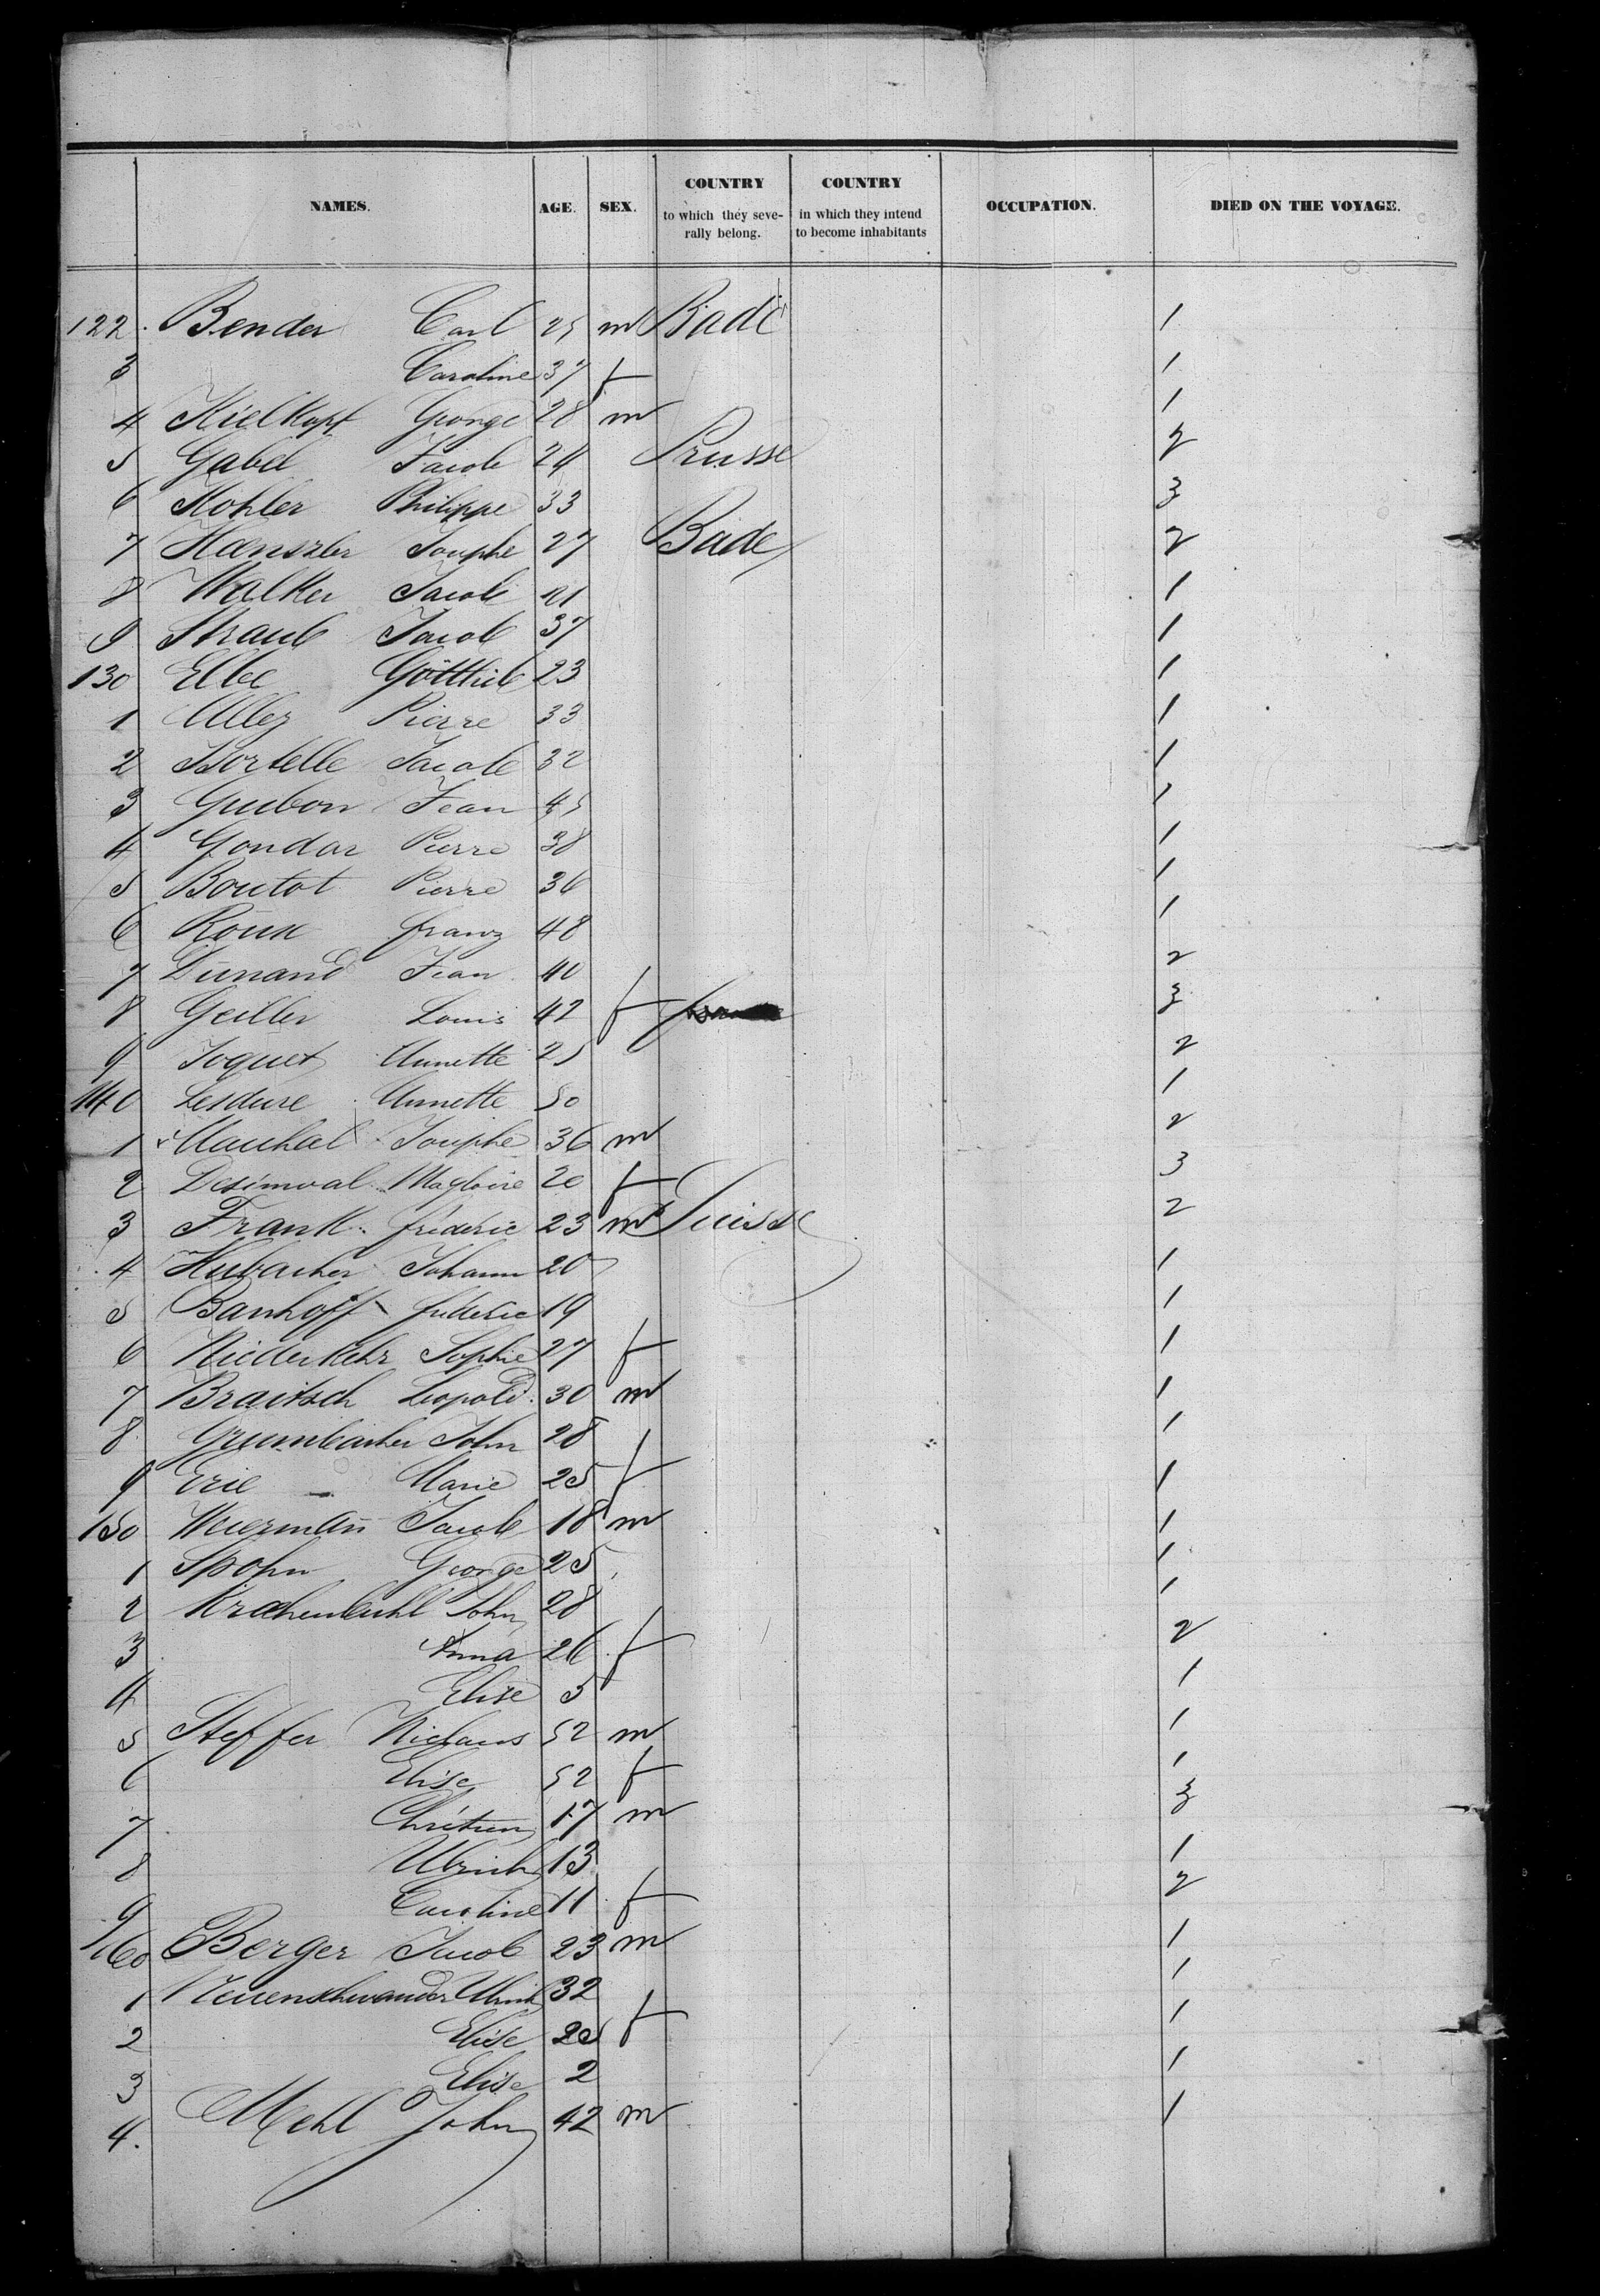 NAMES. AGE. SEX. COUNTRY to which they seve-rally belong. COUNTRY in which they intend to become inhabitants OCCUPATION. DIED ON THE VOYAGE.
122. Bender Carl 25 m Bade 1
3 Caroline 37 f 1
4 Kielkopf George 28 m 1
5 Gabel Jacob 24 Prusse 2
6 Kohler Philippe 33 3
7 Haenszler Josephe 27 Bade 2
8 Walker Jacob 21 1
9 Straub Jacob 37 1
130 Elbe Gottlieb 23 1
1 Allez Pierre 33 1
2 Bortelle Jacob 32 1
3 Guibon Jean 45 1
4 Gondar Pierre 38 1
5 Boutot Pierre 36 1
6 Roux franz 48 1
7 Dunand Jean 40 2
8 Geiller Louis 42 f 3
9 Joquet Annette 25 2
140 Lesdure Annette 50 1
1 Josephe 36 m 2
2 Desimval Magloire 20 f 3
3 Frank frederic 23 m Suisse 2
4 Hubacher Johann 20 1
5 Banhoff frederic 19 1
6 Niederkehr Sophie 27 f 1
7 Braitsch Leopold. 30 m 1
8 Grumbacher John 28 1
9 Erie Marie 25 f 1
150 Meierman Jacob 18 m 1
1 Spohn George 25 1
2 Krahenbuhl John 28 1
3 Anna 26 f 2
4 Elise 5 1
5 Steffer Niclaus 52 m 1
6 Elise 52 f 1
7 Chrétien 17 m 3
8 Ulrich 13 1
9 Caroline 11 f 2
160 Berger Jacob 23 m 1
1 Neuenschwander Ulrich 32 1
2 Elise 25 f 1
3 Elise 2 1
4. Mehl John 42 m 1